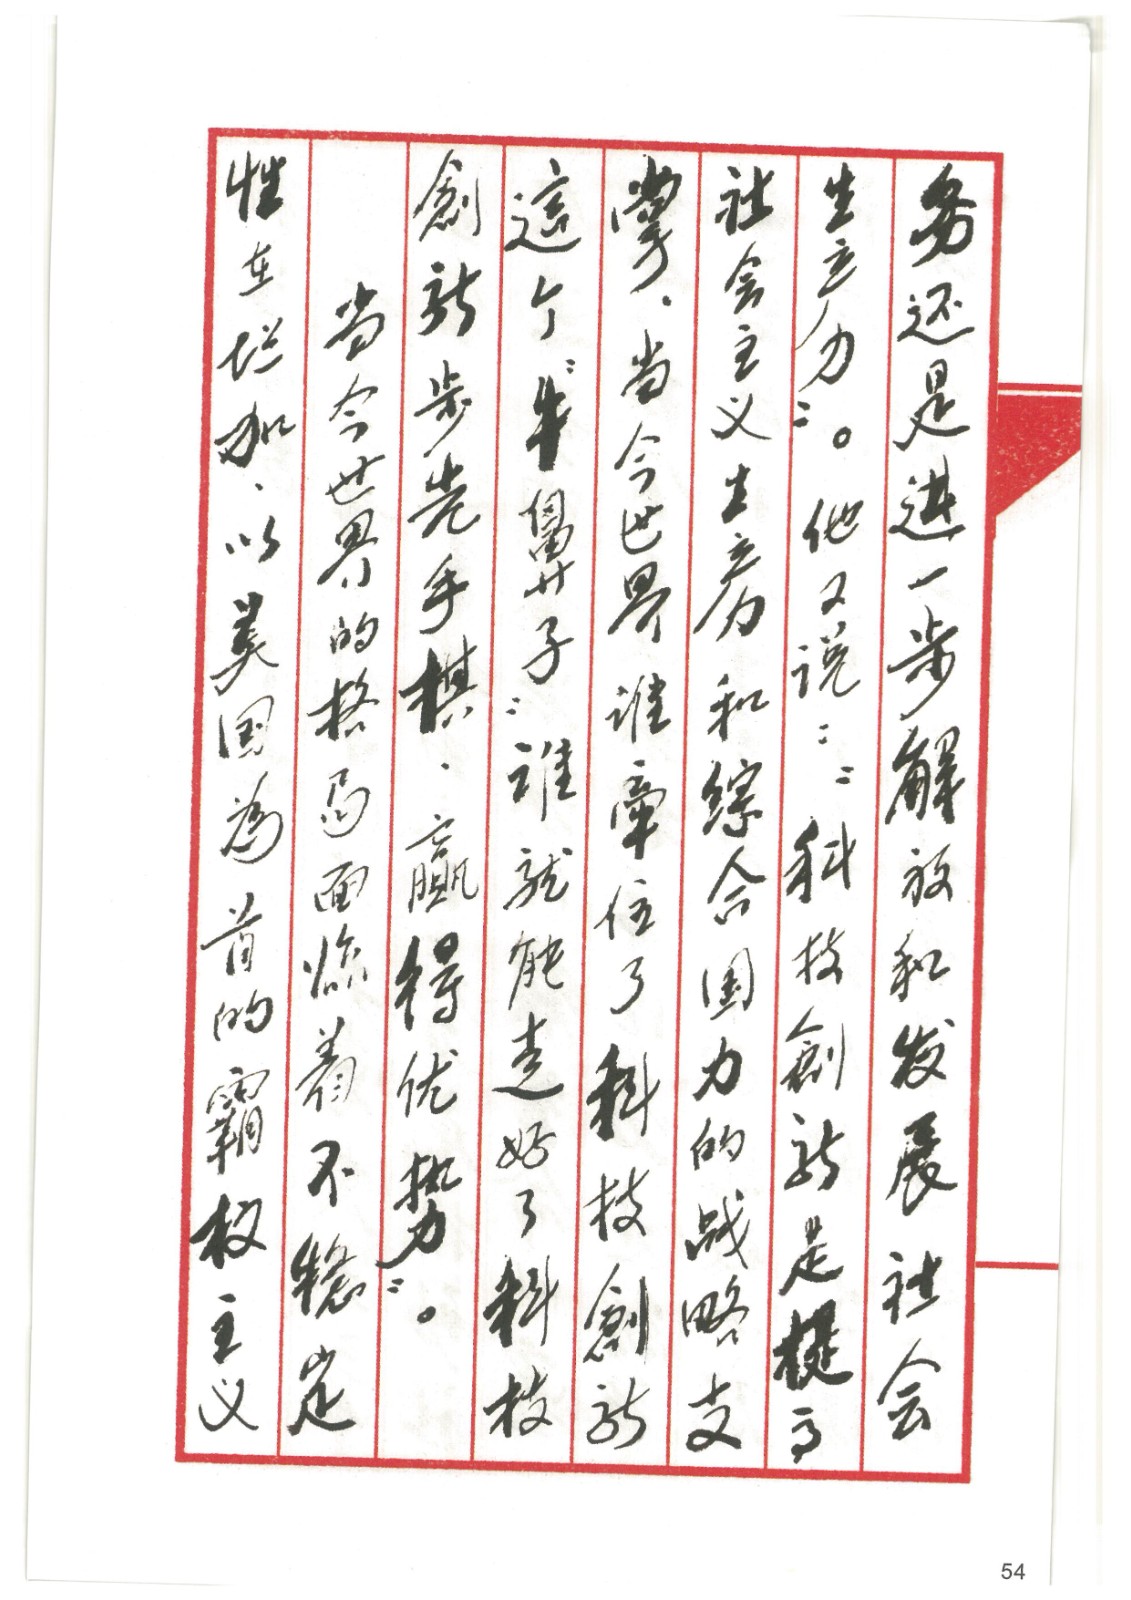 务还是进一步解放和发展社会
生产力”。他又说：“科技創新是提高
社会主义生产力和综合国力的战略支
撑、当今世界谁牵住了科技創新
这个“牛鼻子”谁就能走好了科技
創新步先手棋、赢得优势”。
当今世界的格局面临着不稳定
性在增加、以美国为首的霸权主义
54